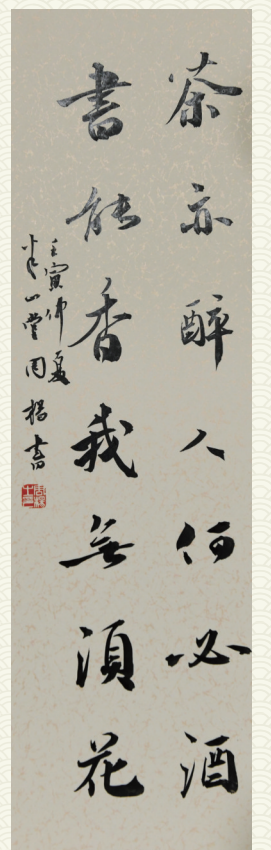 茶亦醉人何必酒
書能香我無須花
壬寅仲夏
半山堂周楊書